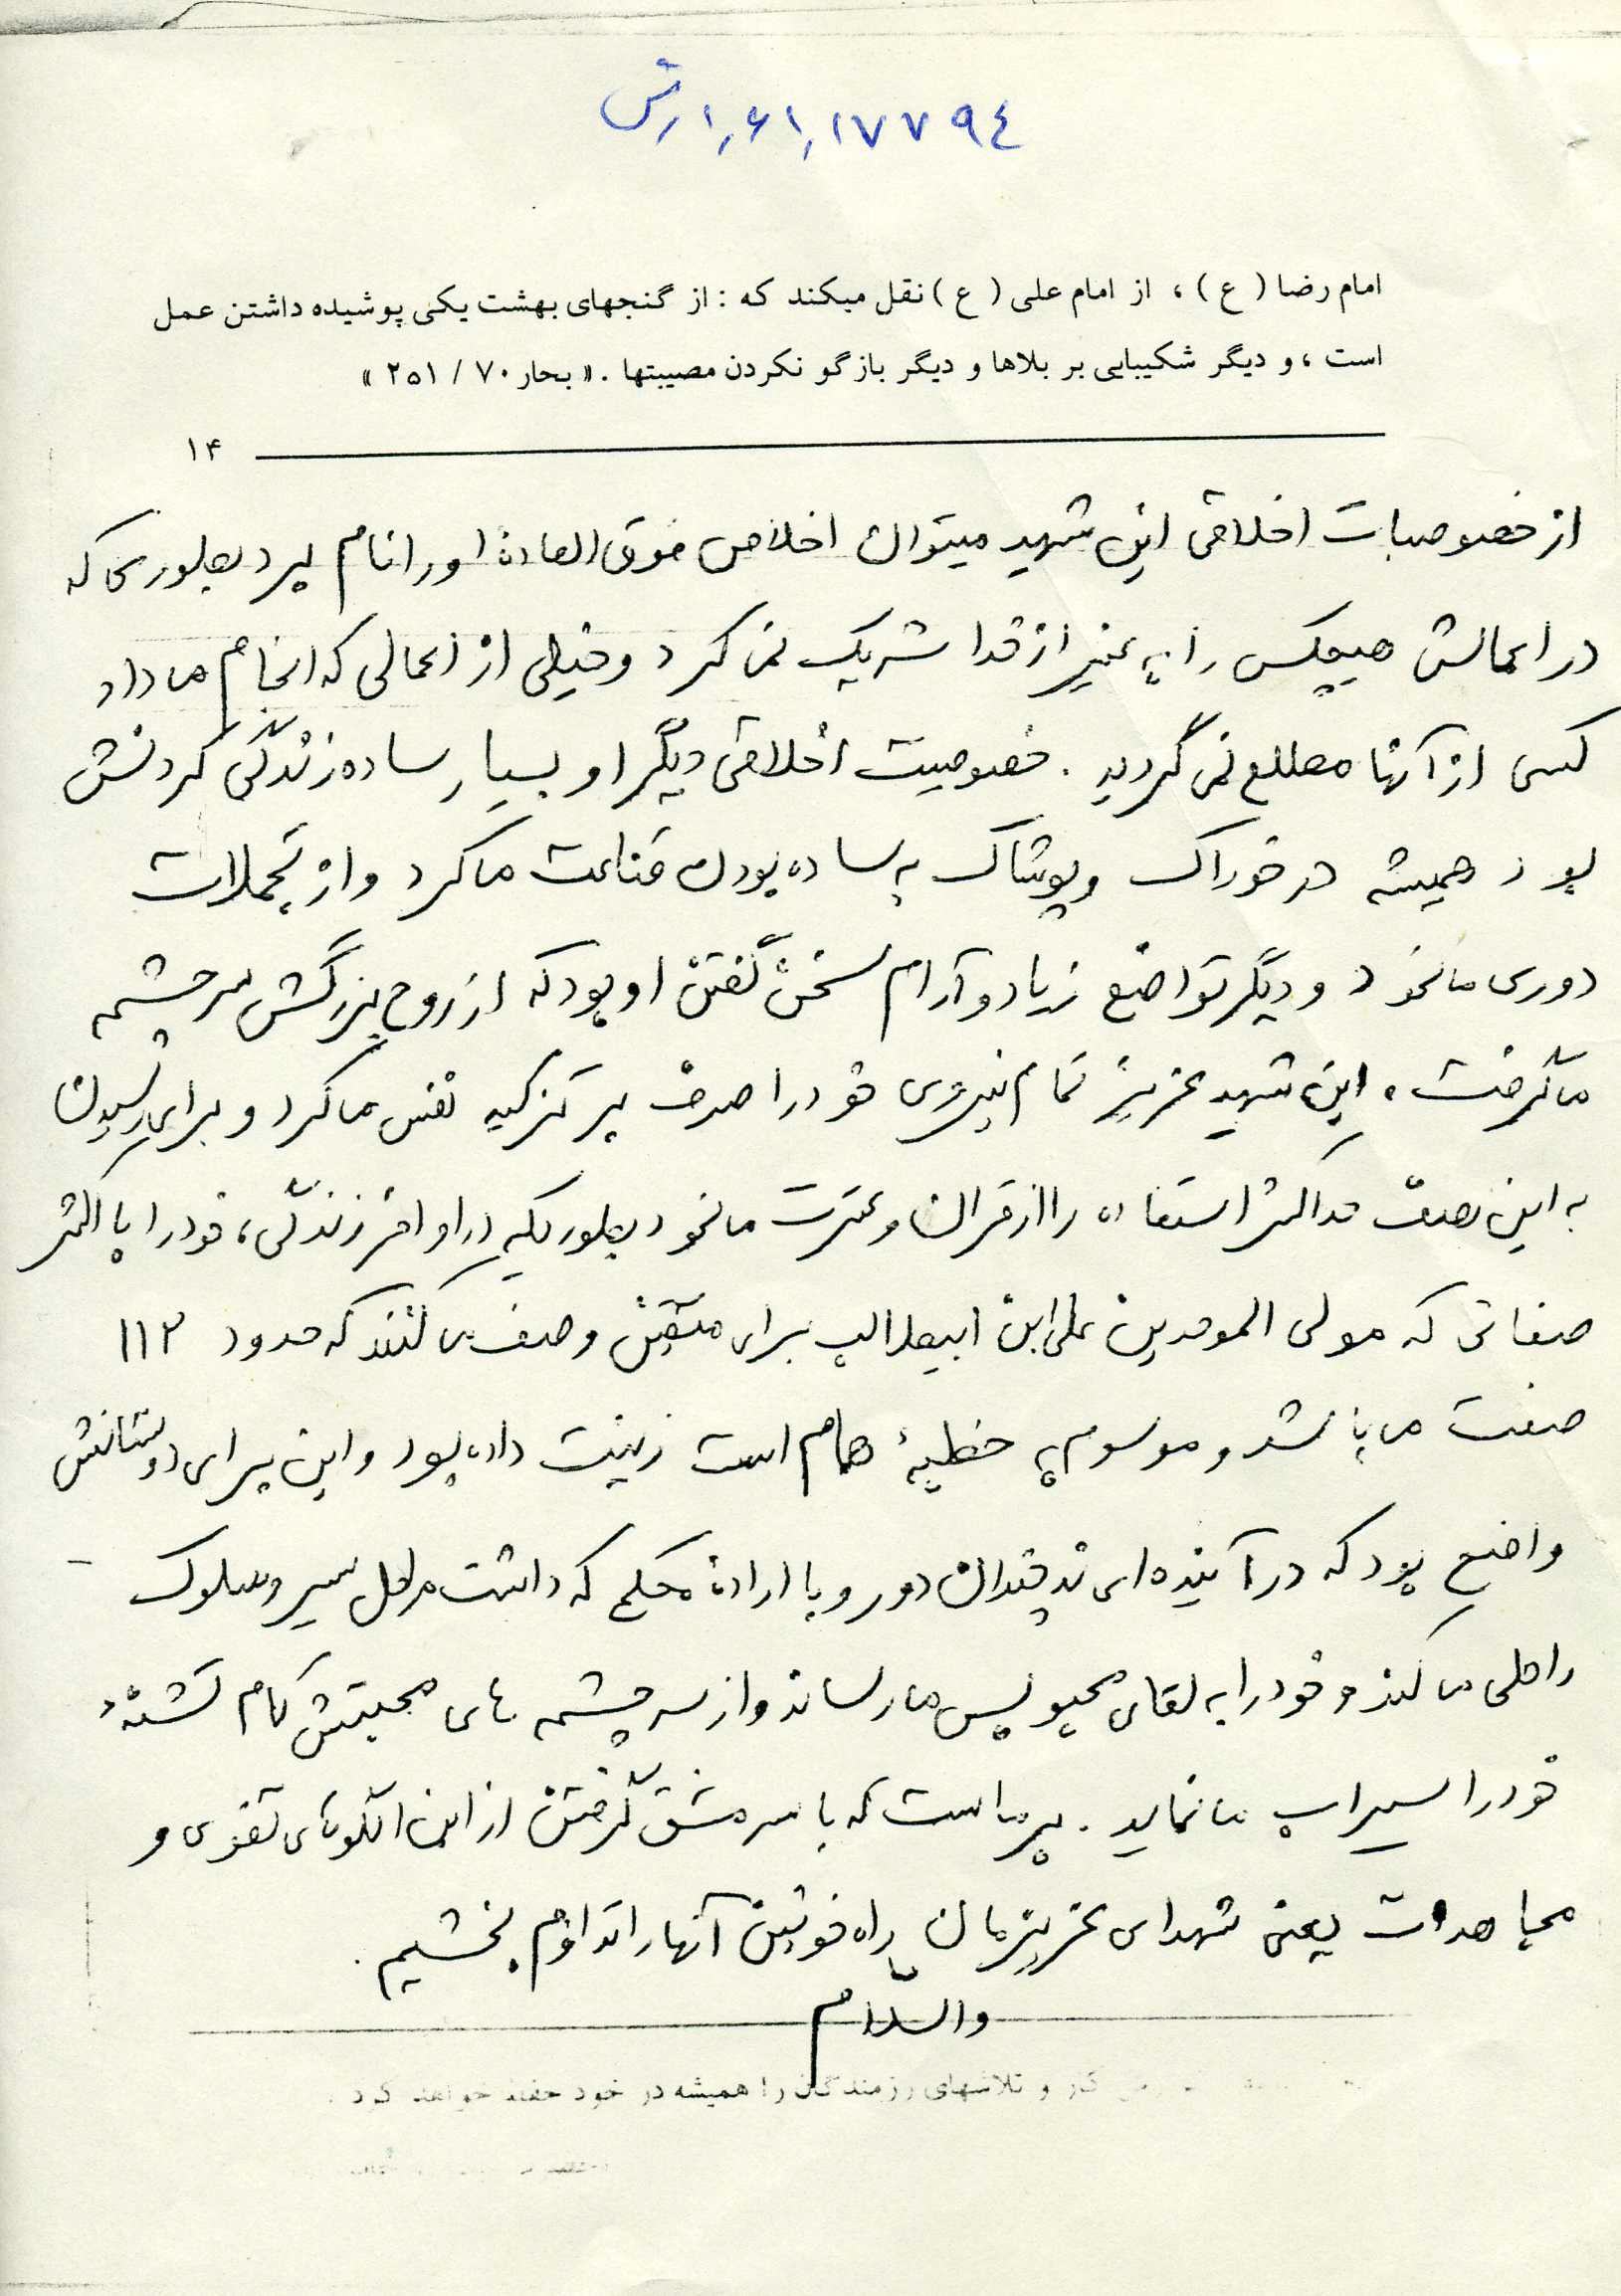 ۱۷۷۹۴ر۶۱ر۱رش
امام رضا (ع)، از امام علی (ع) نقل میکند که : از گنجهای بهشت یکی پوشیده داشتن عمل
است ، و دیگر شکیبایی بر بلاها و دیگر بازگو نکردن مصیبتها . « بحار ۷۰ / ۲۵۱ »
۱۴
از خصوصیات اخلاقی این شهید میتوان اخلاص فوق العادهٔ او را نام برد بطوری که
در اعمالش هیچکس را به غیر از خدا شریک نمی کرد و خیلی از اعمالی که انجام می داد
کسی از آنها مطلع نمی گردید . خصوصیت اخلاقی دیگر او بسیار ساده زندگی کردنش
بود همیشه در خوراک و پوشاک به ساده بودن قناعت می کرد و از تجملات
دوری می نمود و دیگر تواضع زیاد و آرام سخن گفتن او بود که از روح بزرگش سرچشمه
می گرفت . این شهید عزیز تمام نیروی خود را صرف بر تزکیه نفس می کرد و برای رسیدن
به این هدف حداکثر استفاده را از قرآن و عترت می نمود بطوریکه در اواخر زندگی ، خود را با اکثر
صفاتی که مولی الموحدین علی ابن ابیطالب برای متقین وصف می کنند که حدود ۱۱۲
صفت می باشد و موسوم به خطبهٔ همام است زینت داده بود و این برای دوستانش
واضح بود که در آینده ای نه چندان دور و با ارادهٔ محکم که داشت مراحل سیر و سلوک
را طی می کند و خود را به لقای محبوبش می رساند و از سرچشمه های محبتش کام تشنهٔ
خود را سیراب می نماید . بر ما است که با سرمشق گرفتن از این الگوهای تقوی و
مجاهدت یعنی شهدای عزیزمان راه خونین آنها را تداوم بخشیم .
والسلام
کار و تلاشهای رزمندگان را همیشه در خود حفظ خواهد کرد .